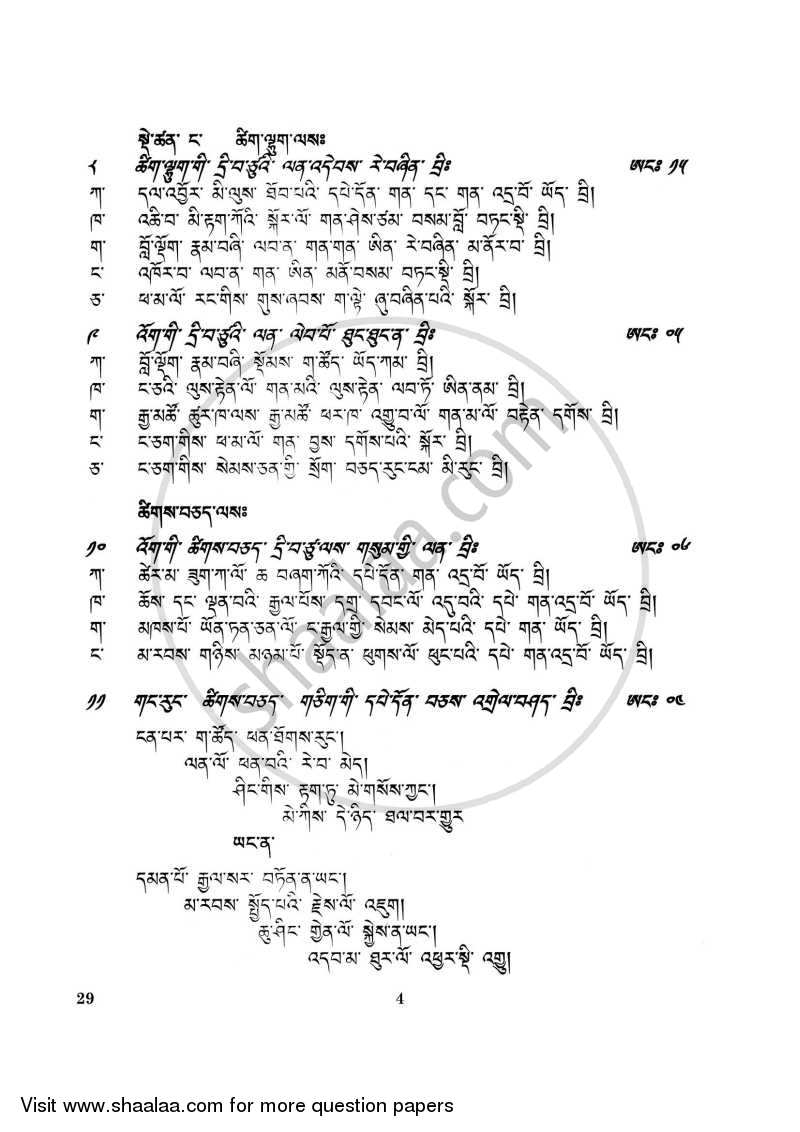 སྡེ་ཚན་ ང་ ཚིག་ལྷུག་ལས༔
༨ ཚིག་ལྷུག་གི་ དྲི་བ་ཙུའི་ ལན་འདེབས་ རེ་བཞིན་ བྲི༔ ཨང༔ ༡༥
ཀ་ དལ་འབྱོར་ མི་ལུས་ ཐོབ་པའི་ དཔེ་དོན་ གན་ དང་ གན་ འདྲ་བོ་ ཡོད་ བྲི།
ཁ་ འཆི་བ་ མི་རྟག་ཀོའི་ སྐོར་ལོ་ གན་ཤེས་ཙམ་ བསམ་བློ་ བཏང་སྟི་ བྲི།
ག་ བློ་ལྡོག་ རྣམ་བཞི་ ལབ་ན་ གན་གན་ ཨིན་ རེ་བཞིན་ མ་ནོར་བ་ བྲི།
ང་ འཁོར་བ་ ལབ་ན་ གན་ ཨིན་ མནོ་བསམ་ བཏང་སྟི་ བྲི།
ཅ་ ཕ་མ་ལོ་ རང་གིས་ གུས་ཞབས་ ག་ལྟེ་ ཞུ་བཞིན་པའི་ སྐོར་ བྲི།
༩ འོག་གི་ དྲི་བ་ཙུའི་ ལན་ ལེབ་པོ་ ཐུང་ཐུང་ན་ བྲི༔ ཨང༔ ༠༥
ཀ་ བློ་ལྡོག་ རྣམ་བཞི་ སྡོམས་ ག་ཚོད་ ཡོད་ཀམ་ བྲི།
ཁ་ ང་ཅའི་ ལུས་རྟེན་ལོ་ གན་མའི་ ལུས་རྟེན་ ལབ་ཏོ་ ཨིན་ནམ་ བྲི།
ག་ རྒྱ་མཚོ་ ཚུར་ཁ་ལས་ རྒྱ་མཚོ་ ཕར་ཁ་ འགྱུ་བ་ལོ་ གན་མ་ལོ་ བརྟེན་ དགོས་ བྲི།
ང་ ང་ཅག་གིས་ ཕ་མ་ལོ་ གན་ བྱས་ དགོས་པའི་ སྐོར་ བྲི།
ཅ་ ང་ཅག་གིས་ སེམས་ཅན་གྱི་ སྲོག་ བཅད་རུང་ངམ་ མི་རུང་ བྲི།
ཚིགས་བཅད་ལས༔
༡༠ འོག་གི་ ཚིགས་བཅད་ དྲི་བ་ཙུ་ལས་ གསུམ་གྱི་ ལན་ བྲི༔ ཨང༔ ༠༦
ཀ་ ཚེར་མ་ ཟུག་ཀ་ལོ་ ཆ་ བཞག་ཀོའི་ དཔེ་དོན་ གན་ འདྲ་བོ་ ཡོད་ བྲི།
ཁ་ ཆོས་ དང་ ལྡན་བའི་ རྒྱལ་པོས་ དགྲ་ དབང་ལོ་ འདུ་བའི་ དཔེ་ གན་འདྲ་བོ་ ཡོད་ བྲི།
ག་ མཁས་པོ་ ཡོན་ཏན་ཅན་ལོ་ ང་རྒྱལ་གྱི་ སེམས་ མེད་པའི་ དཔེ་ གན་ ཡོད་ བྲི།
ང་ མ་རབས་ གཉིས་ མཉམ་པོ་ སྡོད་ན་ ཕུགས་ལོ་ ཕུང་པའི་ དཔེ་ གན་འདྲ་བོ་ ཡོད་ བྲི།
༡༡ གང་རུང་ ཚིགས་བཅད་ གཅིག་གི་ དཔེ་དོན་ བཅས་ འགྲེལ་བཤད་ བྲི༔ ཨང༔ ༠༤
ངན་པར་ ག་ཚོད་ ཕན་ཐོགས་རུང་།
ལན་ལོ་ ཕན་བའི་ རེ་བ་ མེད།
ཤིང་གིས་ རྟག་ཏུ་ མེ་གསོས་ཀྱང་།
མེ་ཀིས་ དེ་ཉིད་ ཐལ་བར་གྱུར
ཡང་ན་
དམན་པོ་ རྒྱལ་སར་ བཏོན་ན་ཡང་།
མ་རབས་ སྤྱོད་པའི་ རྗེས་ལོ་ འཇུག།
ཆུ་ཤིང་ གྱེན་ལོ་ སྐྱེས་ན་ཡང་།
འདབ་མ་ ཐུར་ལོ་ འཕྱར་སྟི་ འགྱུ།
29 4
shaalaa.com
Visit www.shaalaa.com for more question papers